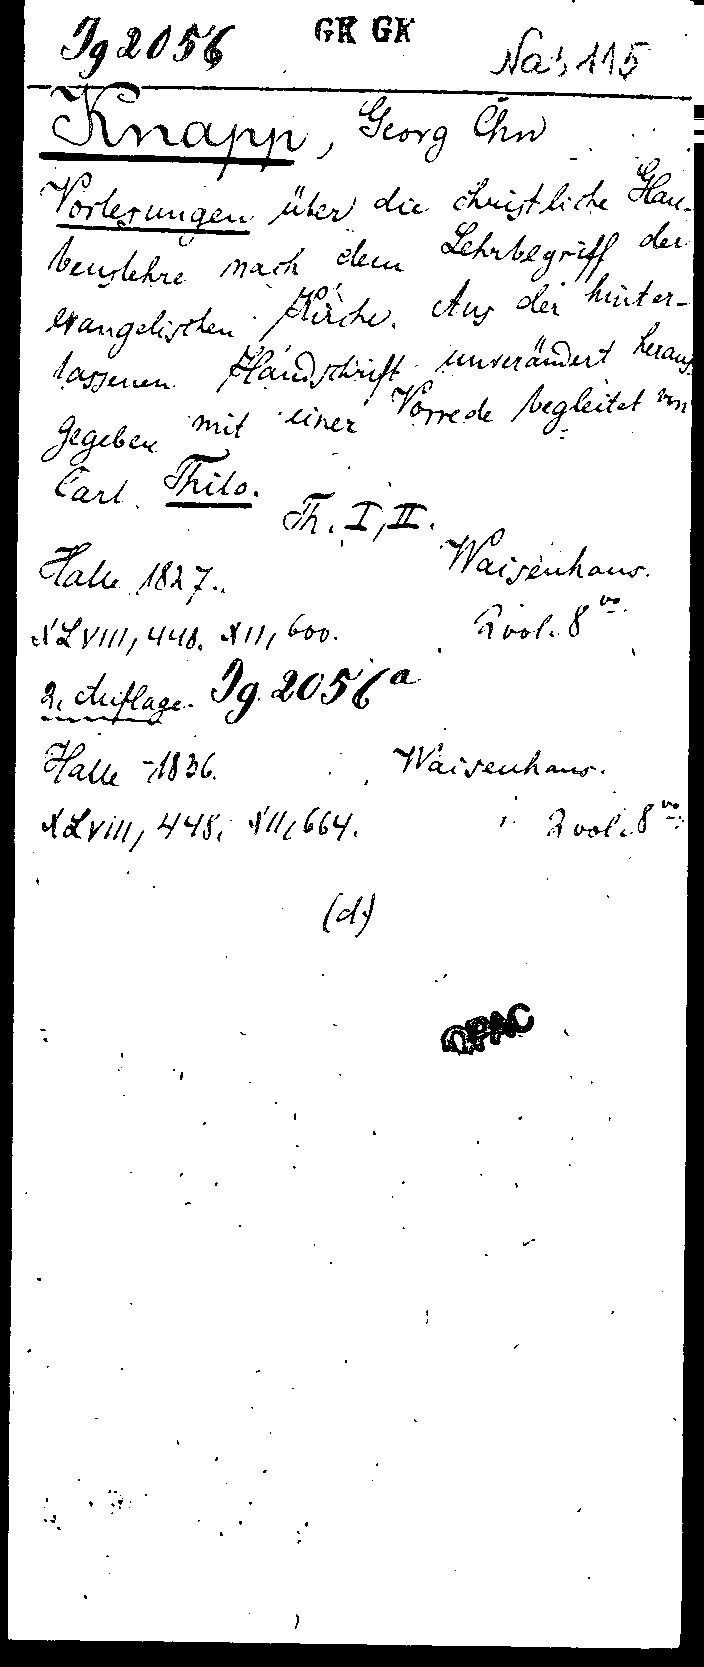 Ig 2056 GK GK Na 115
Knapp, Georg Chn
Vorlesungen über die christliche Glau-
benslehre nach dem Lehrbegriff der
evangelischen Kirche. Aus der hinter-
lassenen Handschrift unverändert heraus
gegeben mit einer Vorrede begleitet von
Carl Thilo.
Th. I, II.
Halle 1827. Waisenhaus.
XLVIII, 448. XII, 600. 2 vol. 8vo.
2. Auflage. Ig 2056a
Halle 1836. Waisenhaus.
XLVIII, 448. XII, 664. 2 vol. 8vo.
(d)
OPAC